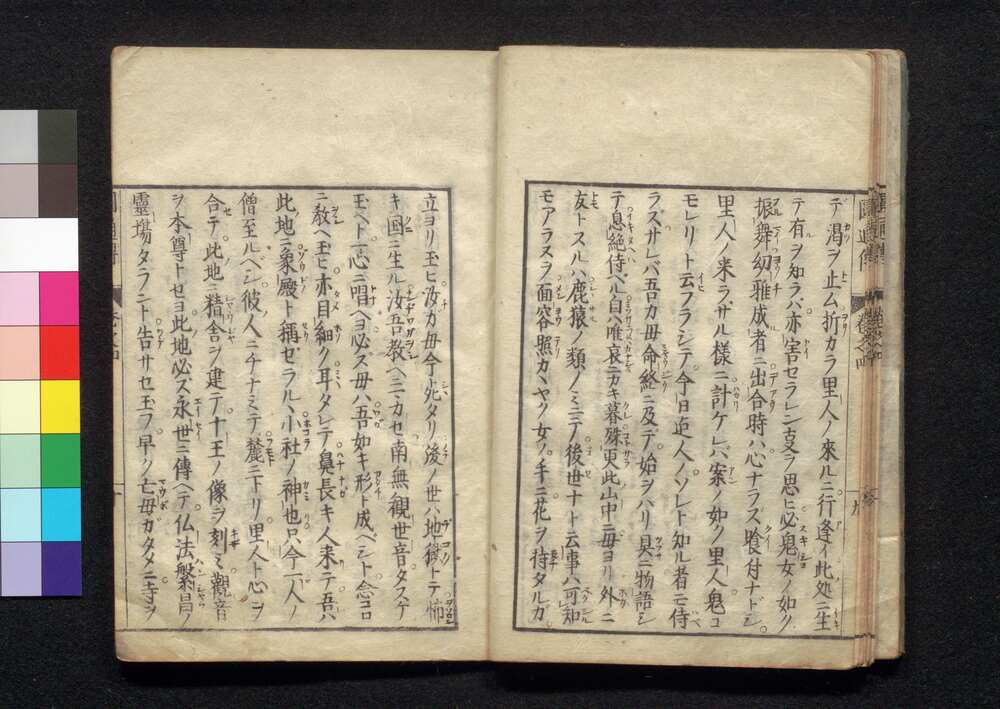 テ渇ヲ止ム折カラ里人ノ來ルニ行逢イ此処ニ生
テ有ヲ知ラバ亦害セラレン支ヲ思ヒ必鬼女ノ如ク
振舞幼雅成者ニ出合時ハ心ナラズ喰付ナドシ
里人ノ来ラザル様ニ計ケレバ案ノ如ク里人鬼コ
モレリト云フラシテ今日迠人ノソレト知ル者モ侍
ラズサレバ吾カ母命終ニ及デ始ヲハリ具ニ物語シ
テ息絶侍ベル自唯哀ニカキ暮殊更此山中ニ毋ヨリ外ニ
友トスルハ鹿猿ノ類ノミニテ後世ナト云事ハ可知
モアラスラ面容照カヽヤク女ノ手ニ花ヲ持タルカ
立ヨリ玉ヒ汝カ毋今死タリ後ノ世ハ地獄トテ怖
キ国ニ生ル汝吾教ヘニマカセ南無觀世音タスケ
玉ヘト一心ニ唱ヘヨ必ズ毋ハ吾如キ形ト成ベシト念コロ
ニ教ヘ玉ヒ亦目細ク耳タレテ鼻長キ人来テ吾ハ
此地ニ象殿ト稱ゼラルヽ小社ノ神也只今一人ノ
僧至ルベシ彼人ニチナミテ麓ニ下リ里人ト心ヲ
合テ此地ニ精舎ヲ建テ十王ノ像ヲ刻ミ觀音
ヲ本尊トセヨ此地必ズ永世ニ傳ヘテ仏法繁昌ノ
靈塲タラント告サセ玉フ早ク亡毋ガタメニ寺ヲ